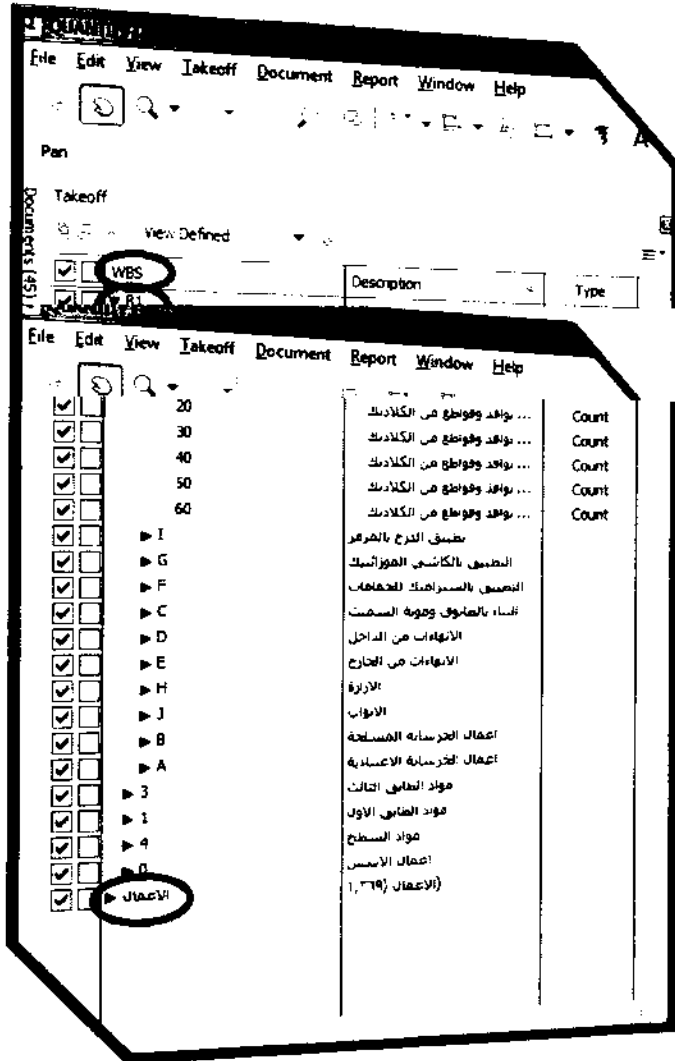 QUANTI
File Edit View Takeoff Document Report Window Help
A
Pan
Takeoff
Documents (45)
View Defined
WBS Description Type
R1
File Edit View Takeoff Document Report Window Help
20 ... نوافذ وقواطع من الكلادنك Count
30 ... نوافذ وقواطع من الكلادنك Count
40 ... نوافذ وقواطع من الكلادنك Count
50 ... نوافذ وقواطع من الكلادنك Count
60 ... نوافذ وقواطع من الكلادنك Count
I تطبيق الدرج بالمرمر
G التطبيق بالكاشي الموزائيك
F التطبيق بالسيراميك للحمامات
C البناء بالطابوق ومونة السمنت
D الانهاءات من الداخل
E الانهاءات من الخارج
H الازارة
J الابواب
B اعمال الخرسانة المسلحة
A اعمال الخرسانة الاعتيادية
3 مواد الطابق الثالث
1 مواد الطابق الاول
4 مواد السطح
0 اعمال الاسس
الاعمال (الاعمال (١,٣٦٩